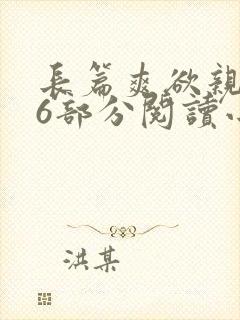 長篇爽欲親
6部分閱讀小
洪某